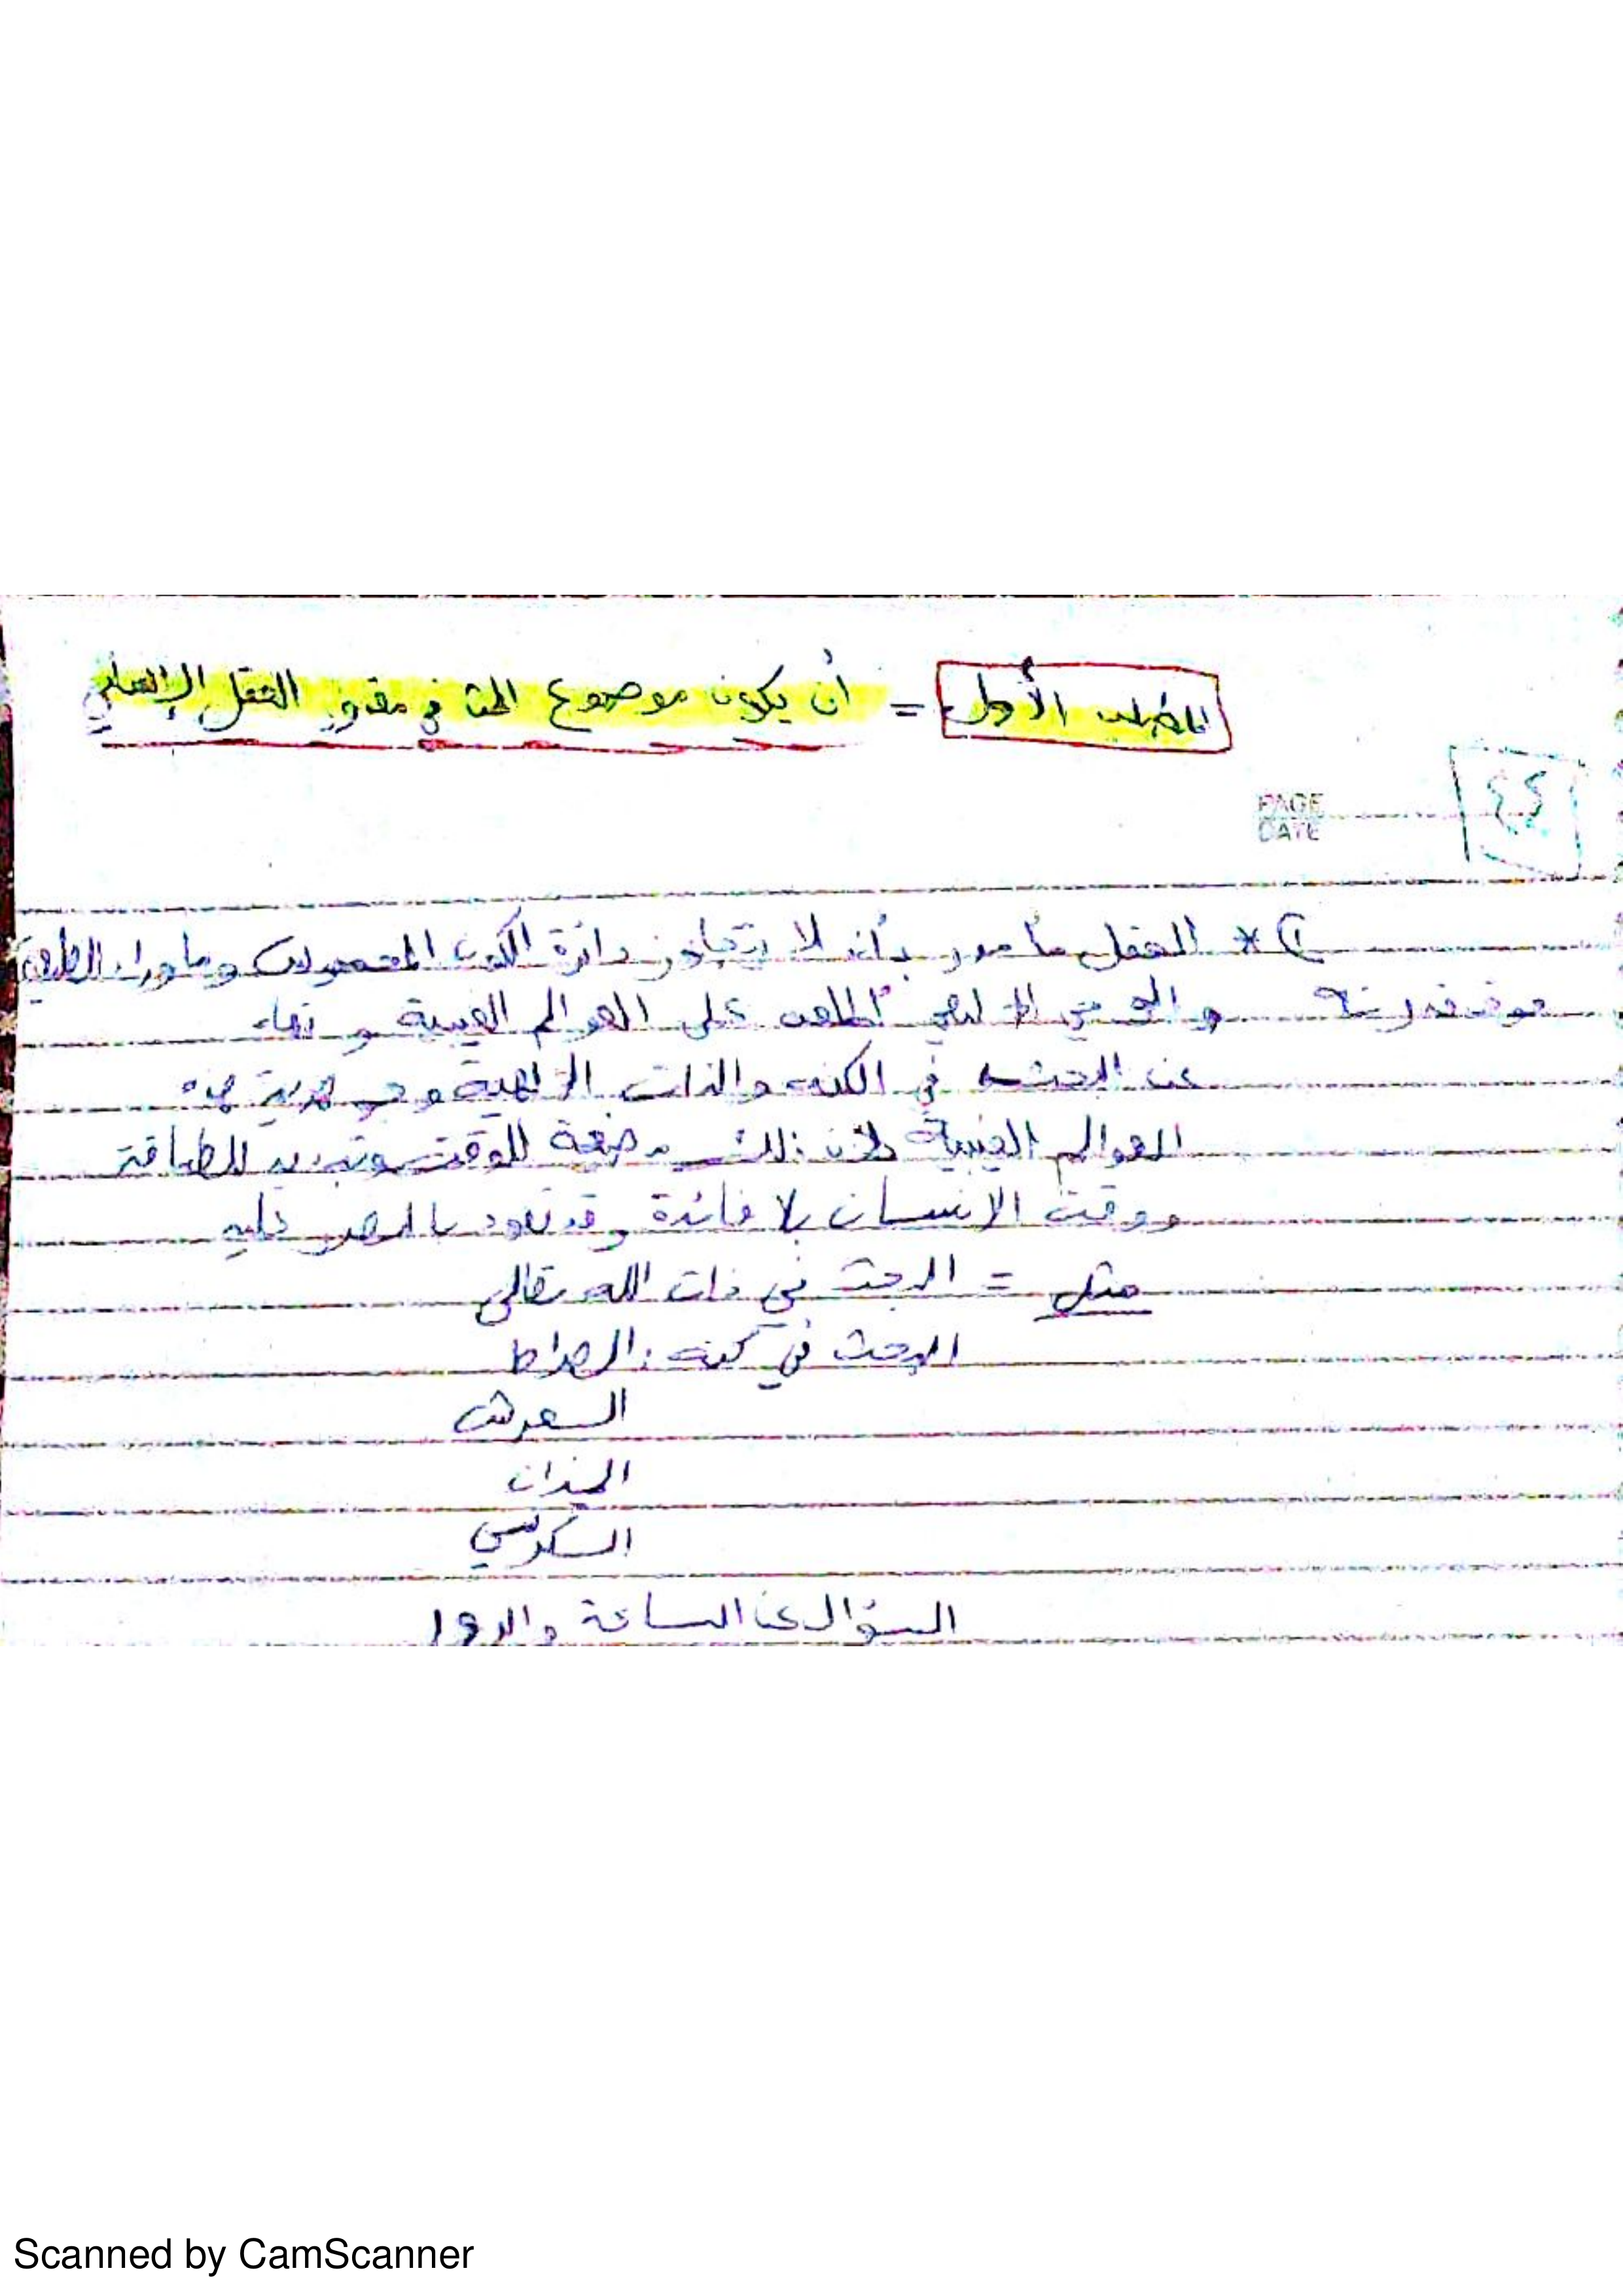 المطلب الأول = أن يكون موضوع البحث في مقدور العقل الإنساني
٤٤
PAGE
DATE
١) * العقل مأمور بأن لا يتجاوز دائرة الكون المحسوس وما وراء الطبيعة
فوق قدرته والوحي الإلهي أطلعه على العوالم الغيبية ونهاه
عن البحث في الكنه والذات الإلهية وهو
العوالم الغيبية لأن ذلك مضيعة للوقت وتبديد للطاقة
ووقت الانسان بلا فائدة وقد تعود بالضرر عليه
مثل = البحث في ذات الله تعالى
البحث في كنه : الصراط
العرش
الميزان
الكرسي
السؤال عن الساعة والروح
Scanned by CamScanner